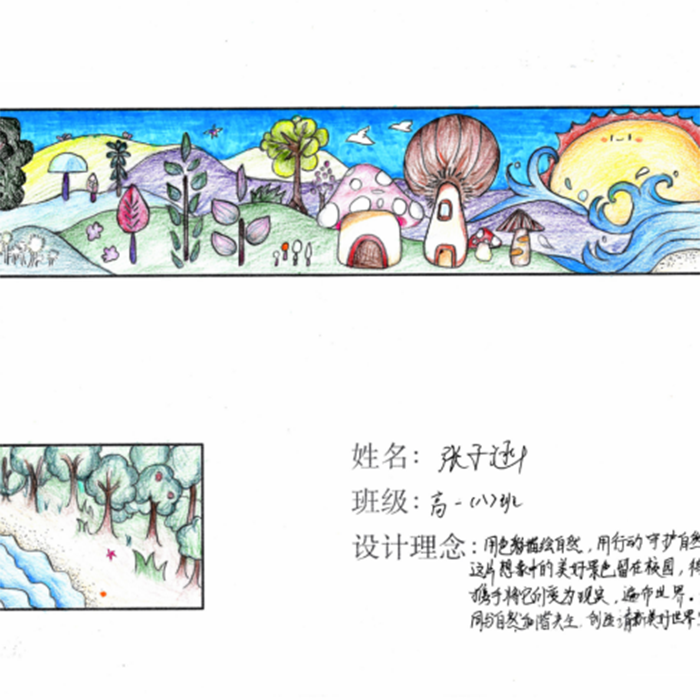 姓名：张子涵
班级：高一（八）班
设计理念：用色彩描绘自然，用行动守护自然
这片想象中的美好景色留在校园，
携手将它们变为现实，遍布世界。
同与自然和谐共生，创造清新美好世界